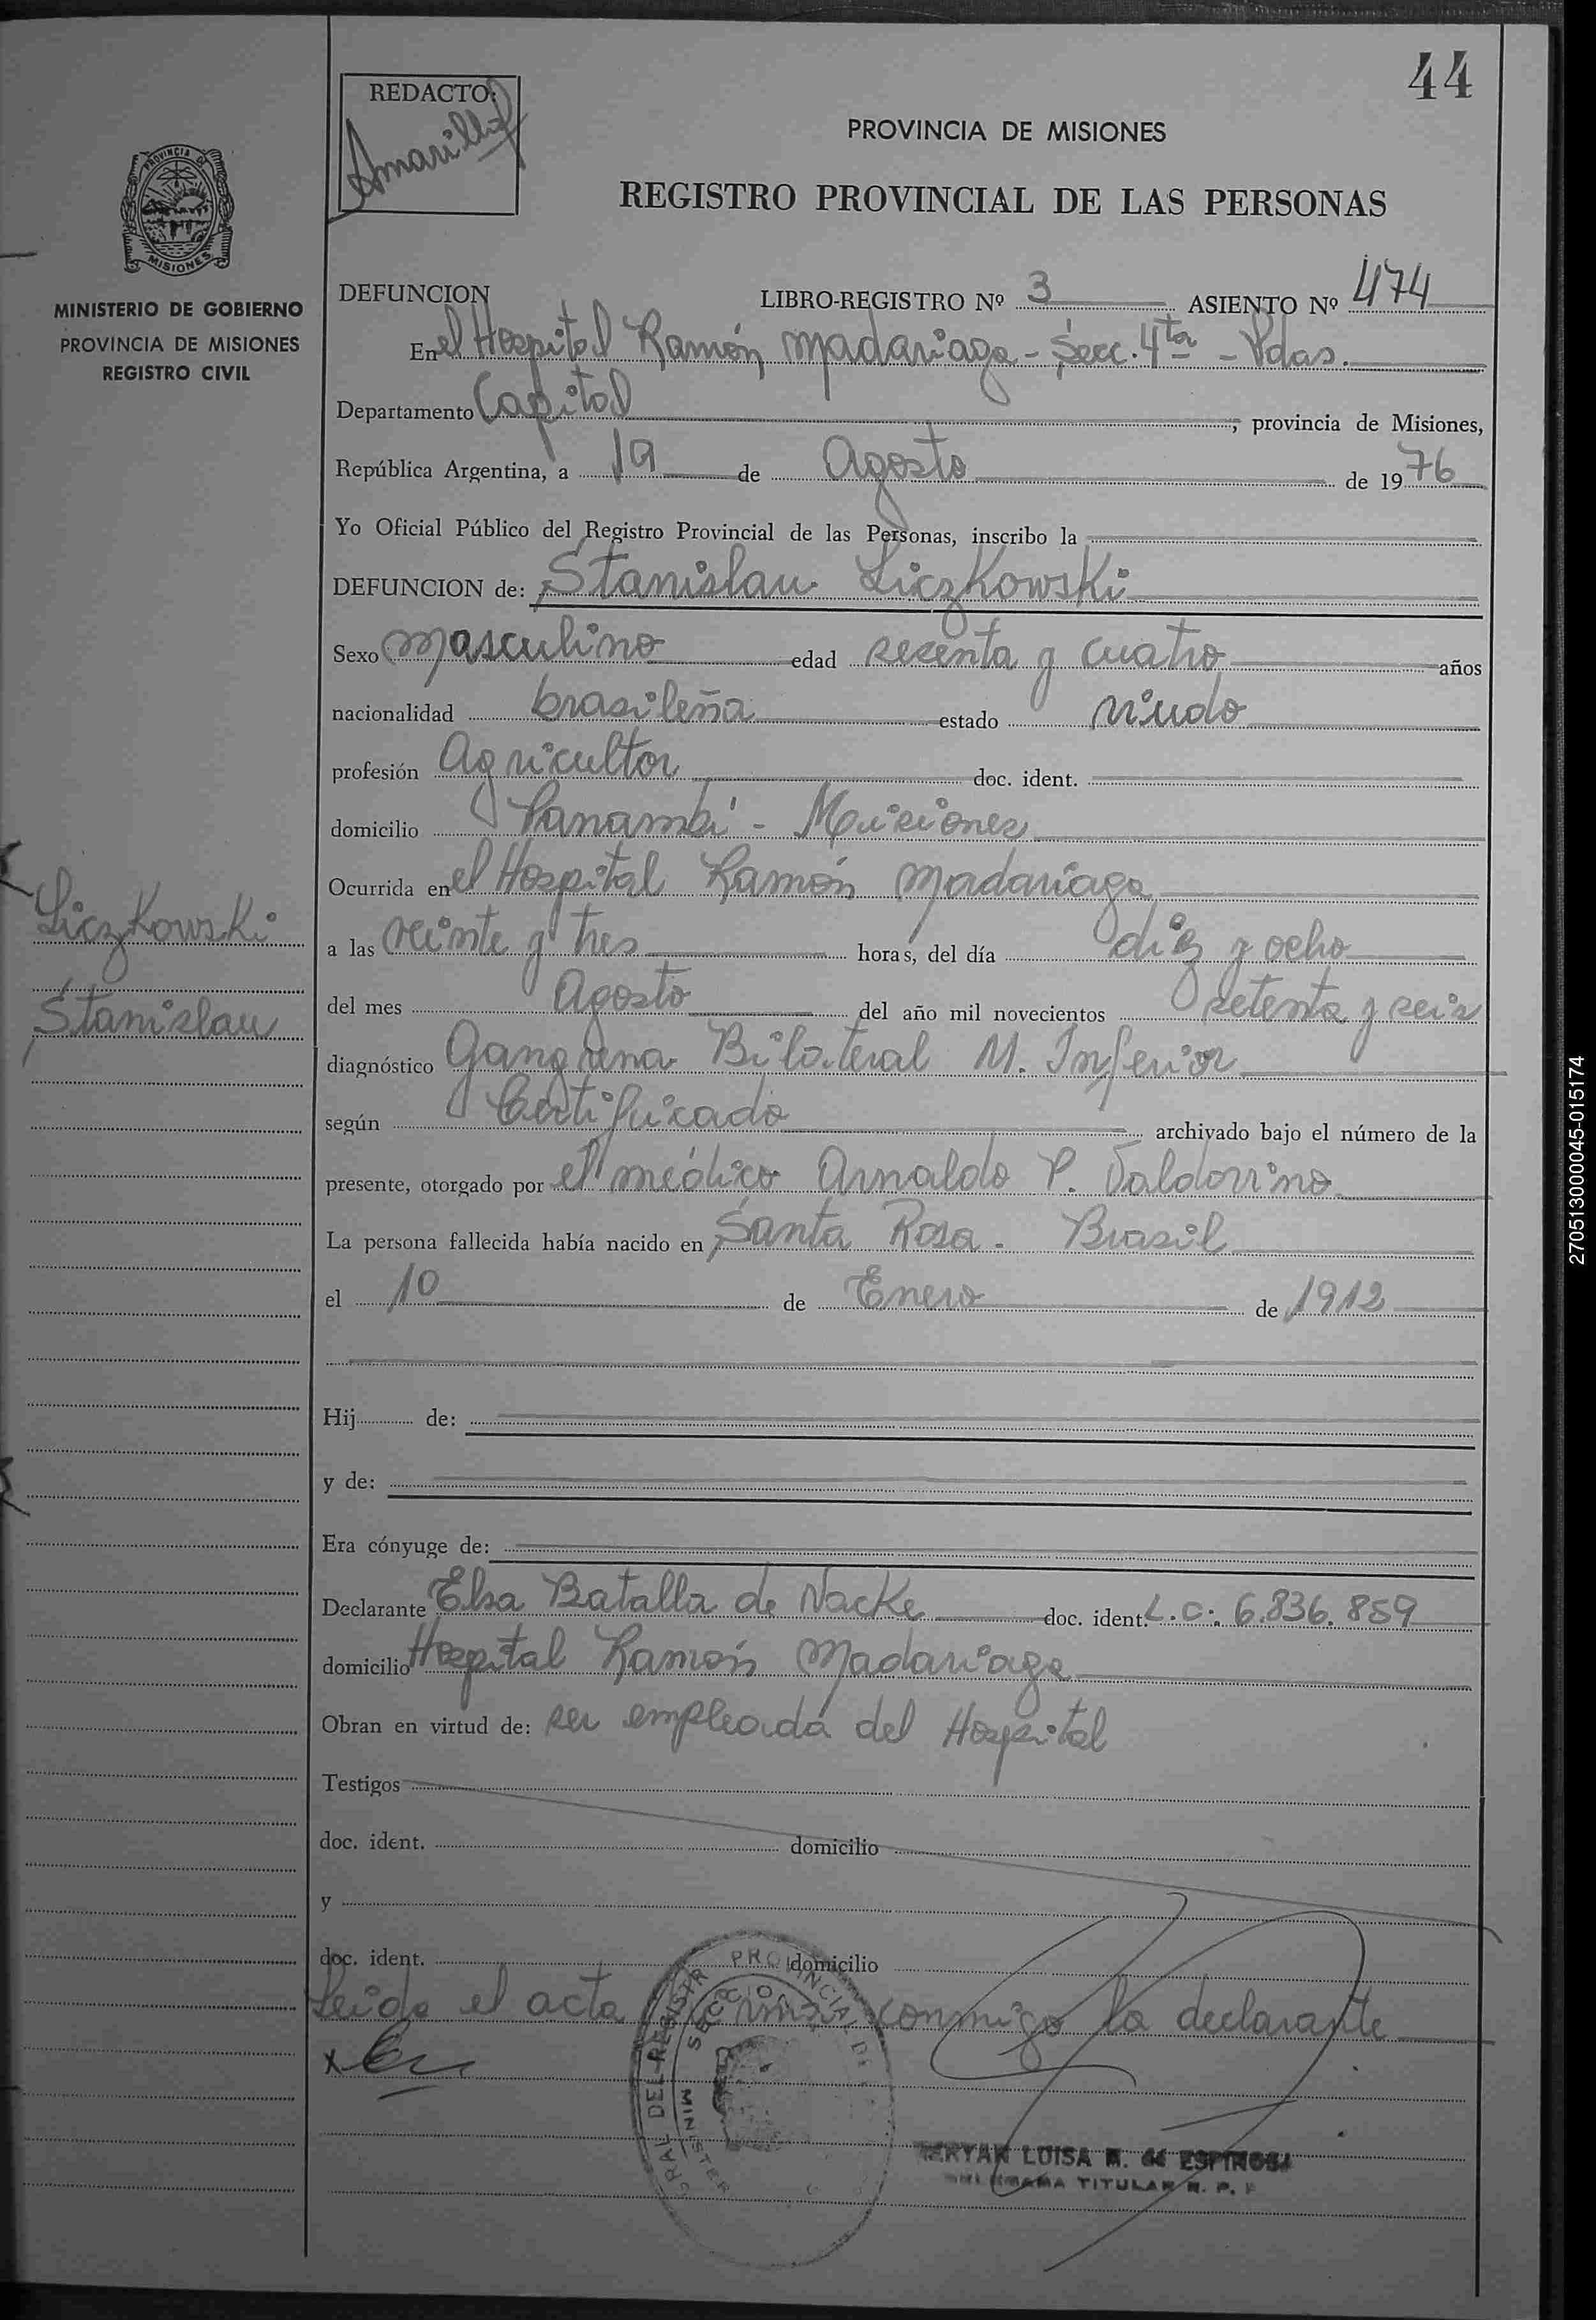 44
REDACTO:
Amarilla
PROVINCIA DE MISIONES
REGISTRO PROVINCIAL DE LAS PERSONAS
PROVINCIA DE
MISIONES
MINISTERIO DE GOBIERNO
PROVINCIA DE MISIONES
REGISTRO CIVIL
DEFUNCION LIBRO-REGISTRO Nº 3 ASIENTO Nº 474
En el Hospital Ramón Madariaga - Secc. 4ta - Pdas.
Departamento Capital, provincia de Misiones,
República Argentina, a 19 de Agosto de 1976
Yo Oficial Público del Registro Provincial de las Personas, inscribo la
DEFUNCION de: Stanislau Liczkowski
Sexo masculino edad sesenta y cuatro años
nacionalidad brasileña estado viudo
profesión Agricultor doc. ident.
domicilio Panambí - Misiones
Ocurrida en el Hospital Ramón Madariaga
a las veinte y tres horas, del día diez y ocho
del mes Agosto del año mil novecientos setenta y seis
diagnóstico Gangrena Bilateral M. Inferior
según Certificado archivado bajo el número de la
presente, otorgado por el médico Arnaldo P. Valdovino
La persona fallecida había nacido en Santa Rosa - Brasil
el 10 de Enero de 1912
Hij de:
y de:
Era cónyuge de:
Declarante Elsa Batalla de Nacke doc. ident. L.C. 6.836.859
domicilio Hospital Ramón Madariaga
Obran en virtud de: ser empleada del Hospital
Testigos
doc. ident. domicilio
y
doc. ident. domicilio
Leida el acta firma conmigo la declarante
Liczkowski
Stanislau
LUISA M. de ESPINOSA
TITULAR R. P. P.
270513000045-015174